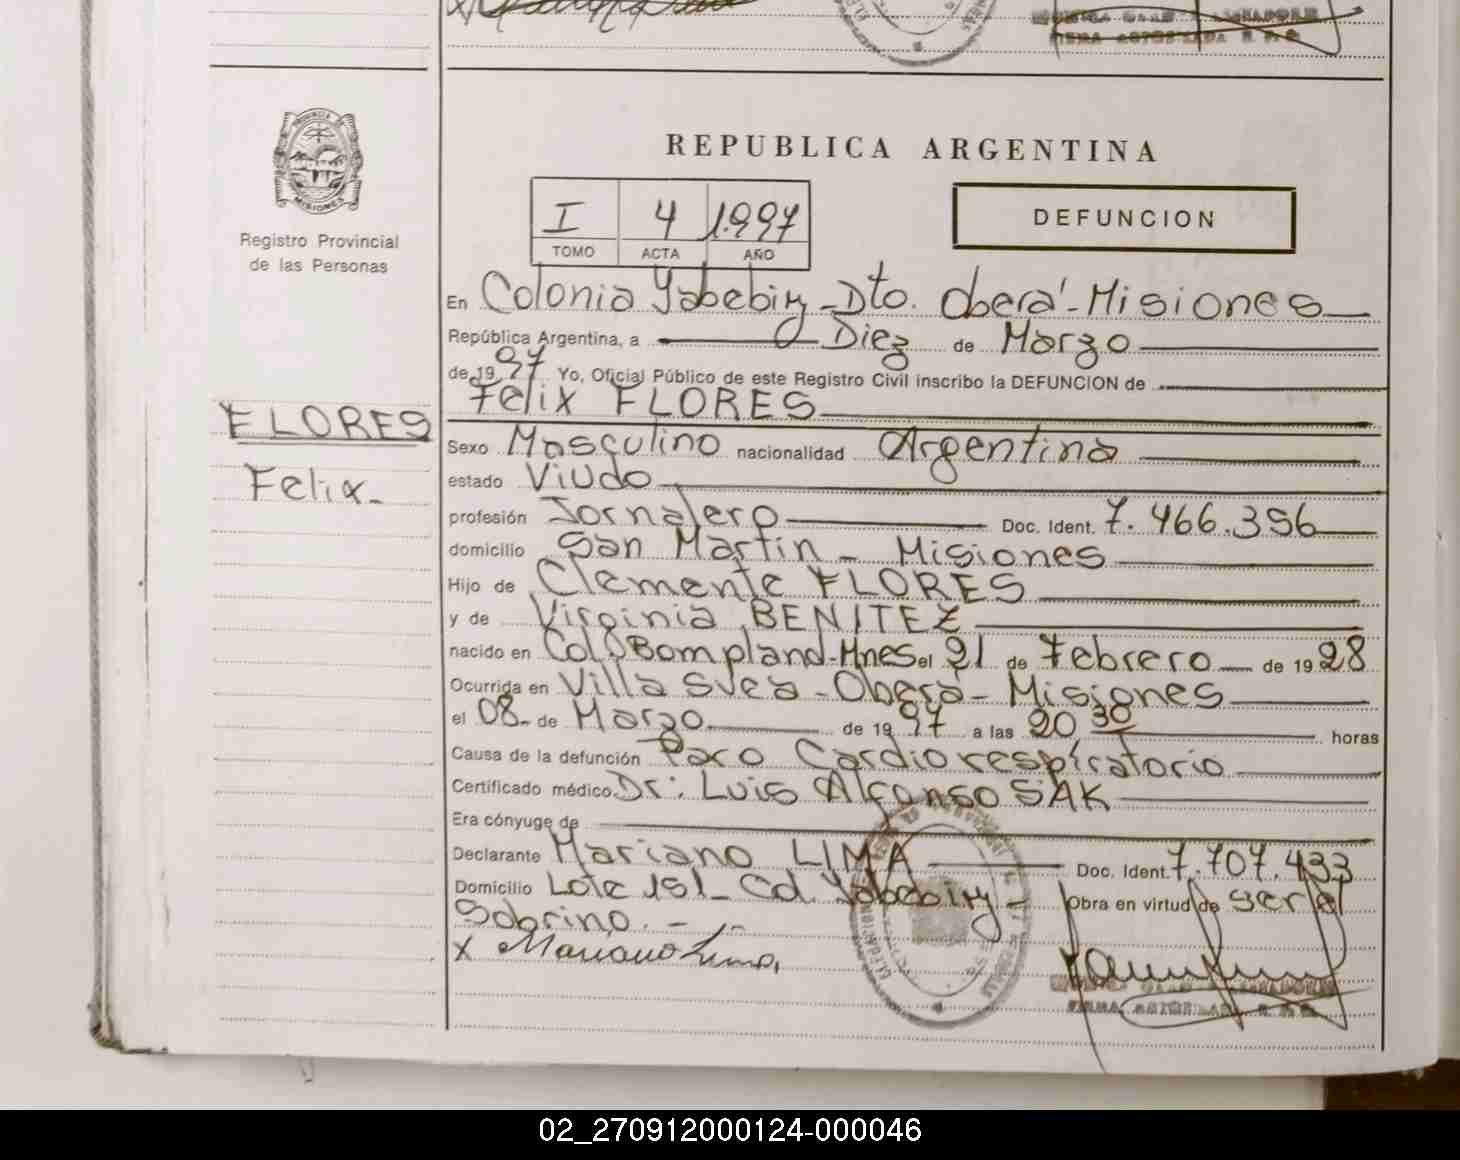 REPUBLICA ARGENTINA
I 4 1.997
TOMO ACTA AÑO
DEFUNCION
MISIONES
Registro Provincial
de las Personas
FLORES
Felix.-
En Colonia Yabebiry - Dto. Oberá - Misiones
República Argentina, a Diez de Marzo
de 19 97 Yo, Oficial Público de este Registro Civil inscribo la DEFUNCION de
Felix FLORES
Sexo Masculino nacionalidad Argentina
estado Viudo
profesión Jornalero Doc. Ident. 7.466.356
domicilio San Martin - Misiones
Hijo de Clemente FLORES
y de Virginia BENITEZ
nacido en Col. Bompland - Mnes el 21 de Febrero de 19 28
Ocurrida en Villa Svea - Oberá - Misiones
el 08 - de Marzo de 19 97 a las 20 30 horas
Causa de la defunción Paro Cardiorespiratorio
Certificado médico Dr: Luis Alfonso SAK
Era cónyuge de
Declarante Mariano LIMA Doc. Ident. 7.707.433
Domicilio Lote 151 - Col. Yabebiry - Obra en virtud de ser el
Sobrino. - -
X Mariano Lima
02_270912000124-000046